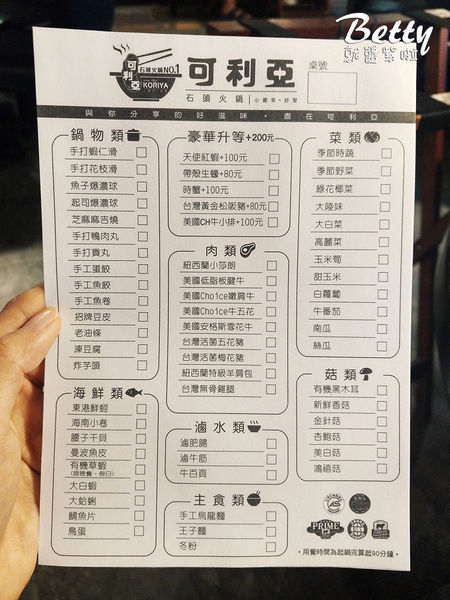 Betty
石頭火鍋NO.1
可利亞
KORIYA
可利亞
石頭火鍋
桌號
與你分享的好滋味，盡在可利亞
鍋物類
手打蝦仁滑
手打花枝滑
魚子爆濃球
起司爆濃球
芝麻麻吉燒
手打鴨肉丸
手打貢丸
手工蛋餃
手工魚餃
手工魚卷
招牌豆皮
老油條
凍豆腐
炸芋頭
海鮮類
東港鮮蚵
海南小卷
腰子干貝
曼波魚皮
有機草蝦
(限晚餐、假日)
大白蝦
大蛤蜊
鯛魚片
鳥蛋
豪華升等+200元
天使紅蝦+100元
帶殼生蠔+80元
時蟹+100元
台灣黃金松阪豬+80元
美國CH牛小排+100元
肉類
紐西蘭小莎朗
美國低脂板腱牛
美國Choice嫩肩牛
美國Choice牛五花
美國安格斯雪花牛
台灣活菌五花豬
台灣活菌梅花豬
紐西蘭特級羊肩包
台灣無骨雞腿
滷水類
滷肥腸
滷牛筋
牛百頁
主食類
手工烏龍麵
王子麵
冬粉
菜類
季節時蔬
季節野菜
綠花椰菜
大陸妹
大白菜
高麗菜
玉米筍
甜玉米
白蘿蔔
牛番茄
南瓜
絲瓜
菇類
有機黑木耳
新鮮香菇
金針菇
杏鮑菇
美白菇
鴻禧菇
PRIME
·用餐時間為起鍋完算起90分鐘·